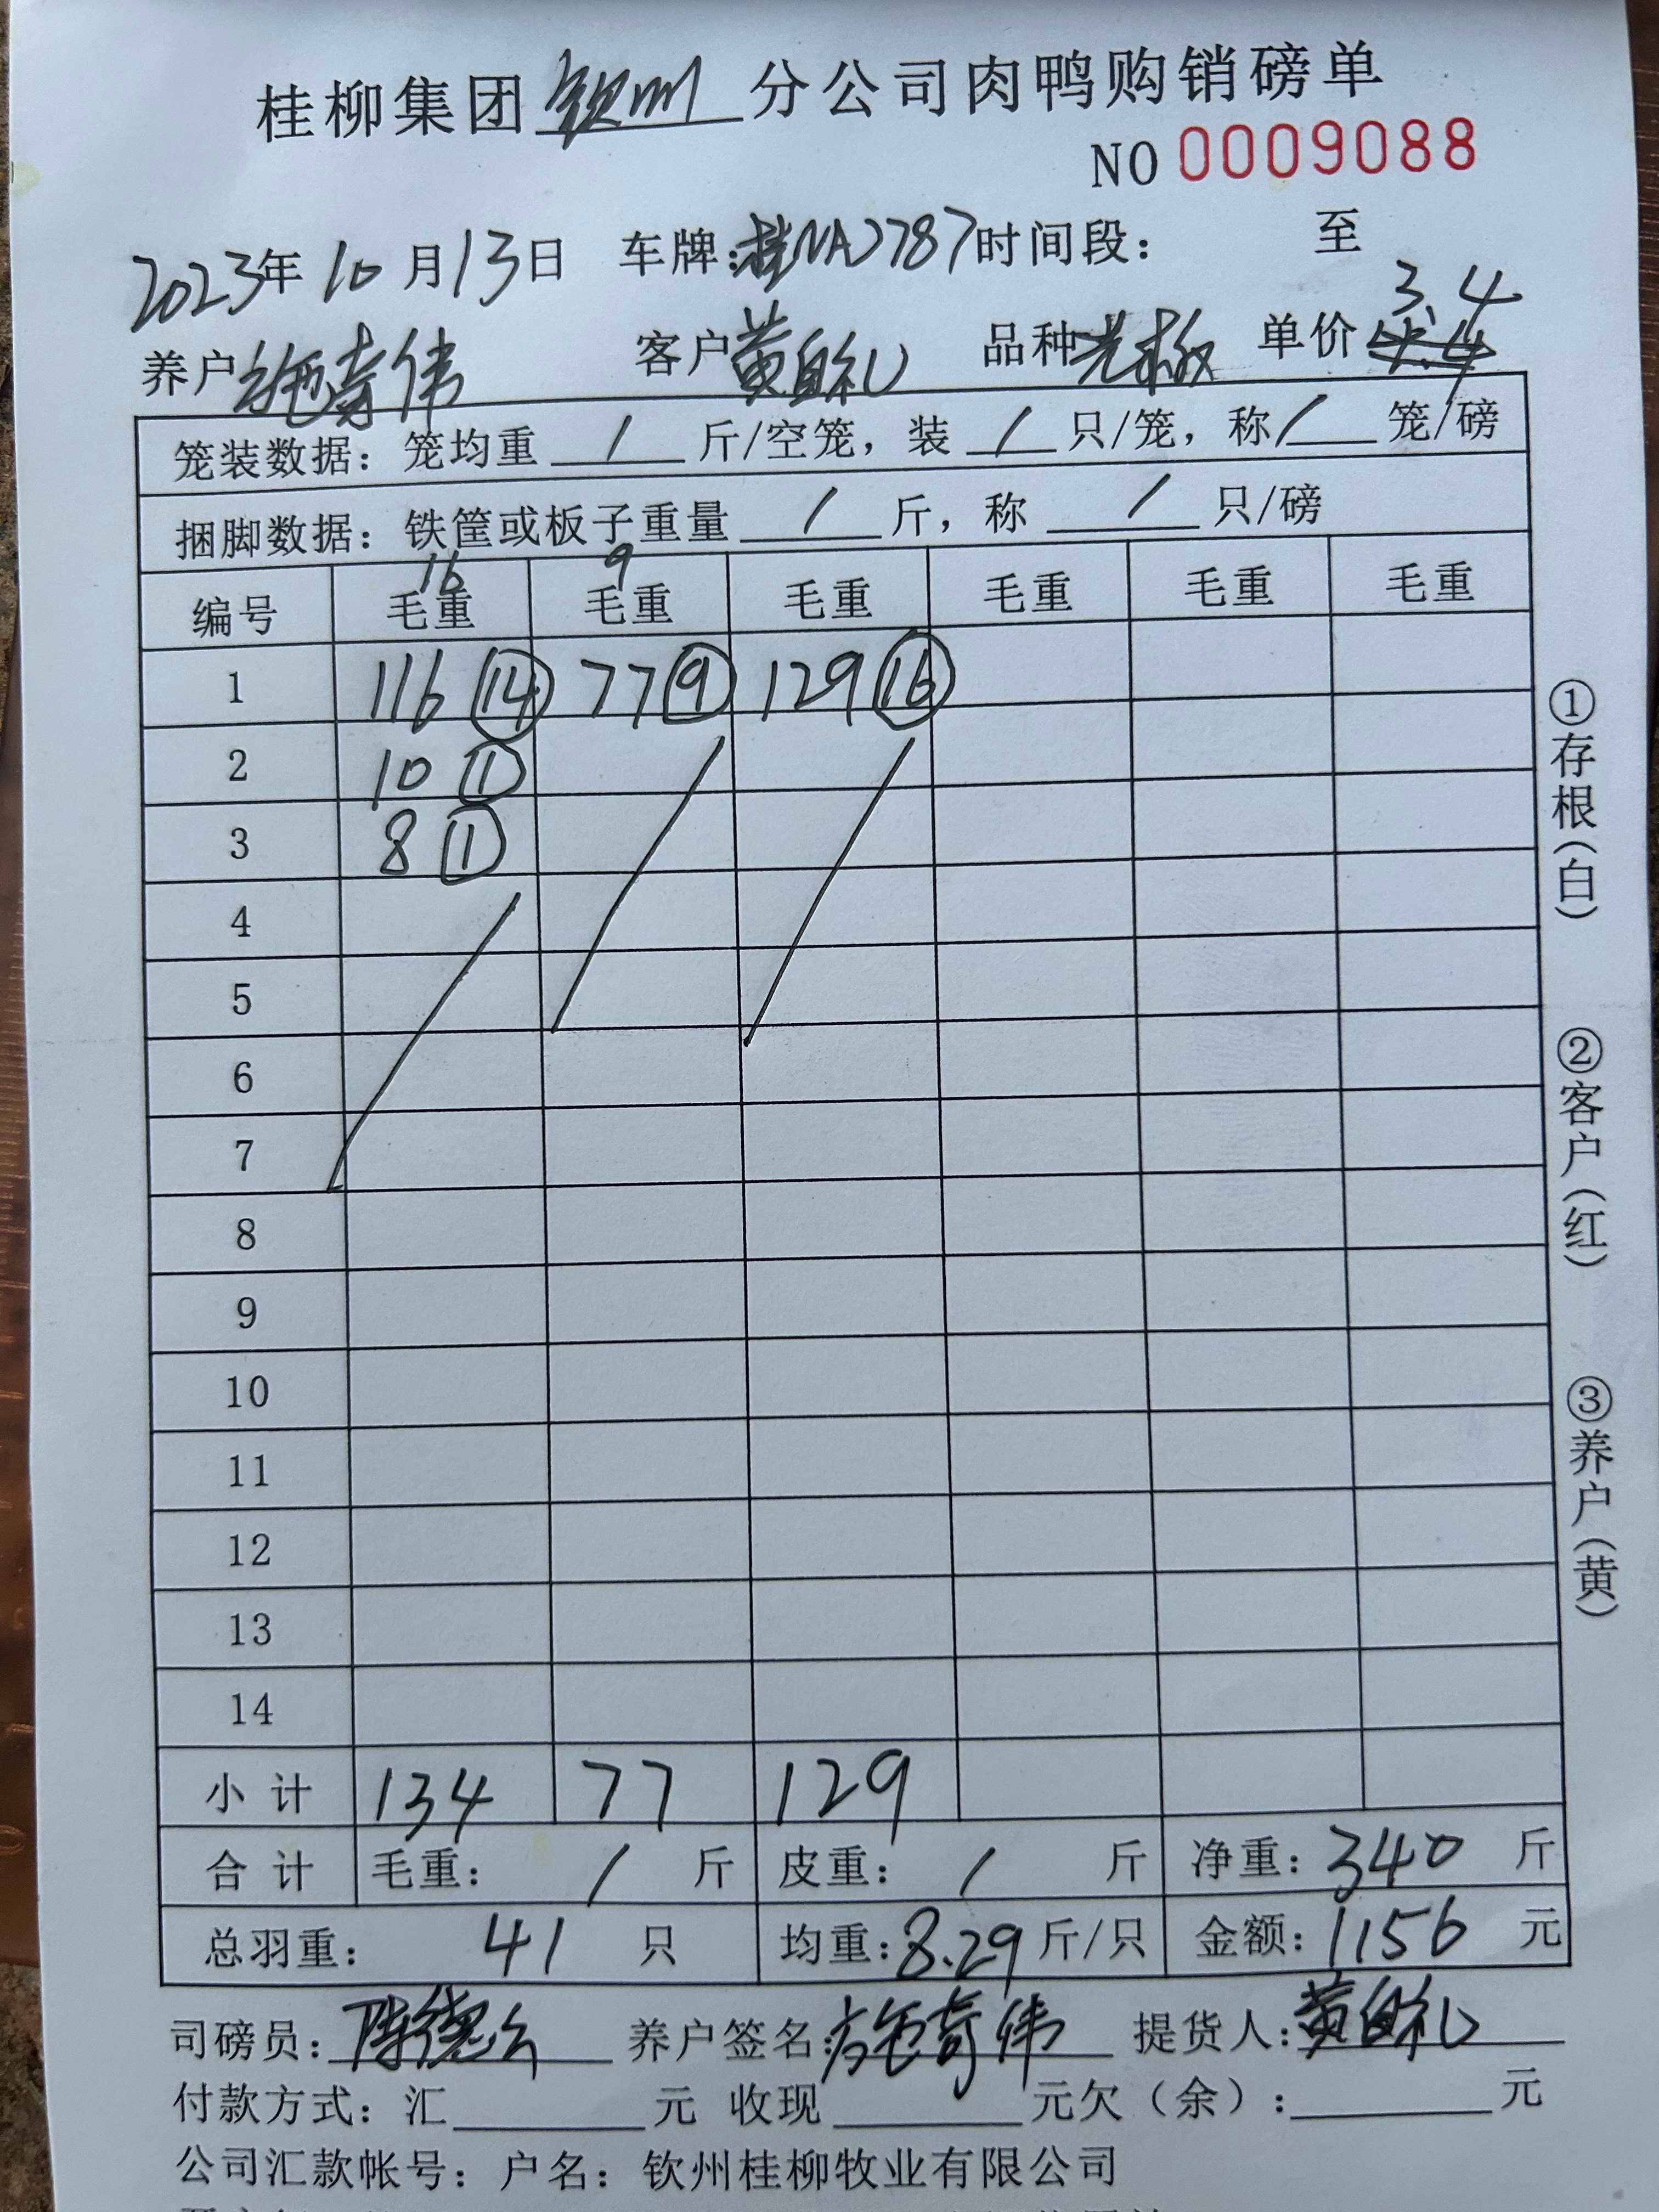 桂柳集团钦州分公司肉鸭购销磅单
NO 0009088
2023年10月13日 车牌:桂NA2787时间段: 至
3.4
养户施奇伟 客户黄自礼 品种 单价
笼装数据:笼均重 / 斤/空笼,装 / 只/笼,称 / 笼/磅
捆脚数据:铁筐或板子重量 / 斤,称 / 只/磅
16 9
编号 毛重 毛重 毛重 毛重 毛重 毛重
1 116 ⑭ 77 ⑨ 129 ⑯
2 10 ①
3 8 ①
4
5
6
7
8
9
10
11
12
13
14
小计 134 77 129
合计 毛重: / 斤 皮重: / 斤 净重:340 斤
总羽重: 41 只 均重:8.29斤/只 金额:1156 元
司磅员:陈德 养户签名:施奇伟 提货人:黄自礼
付款方式:汇 元 收现 元欠(余): 元
公司汇款帐号:户名:钦州桂柳牧业有限公司
①存根(白)
②客户(红)
③养户(黄)